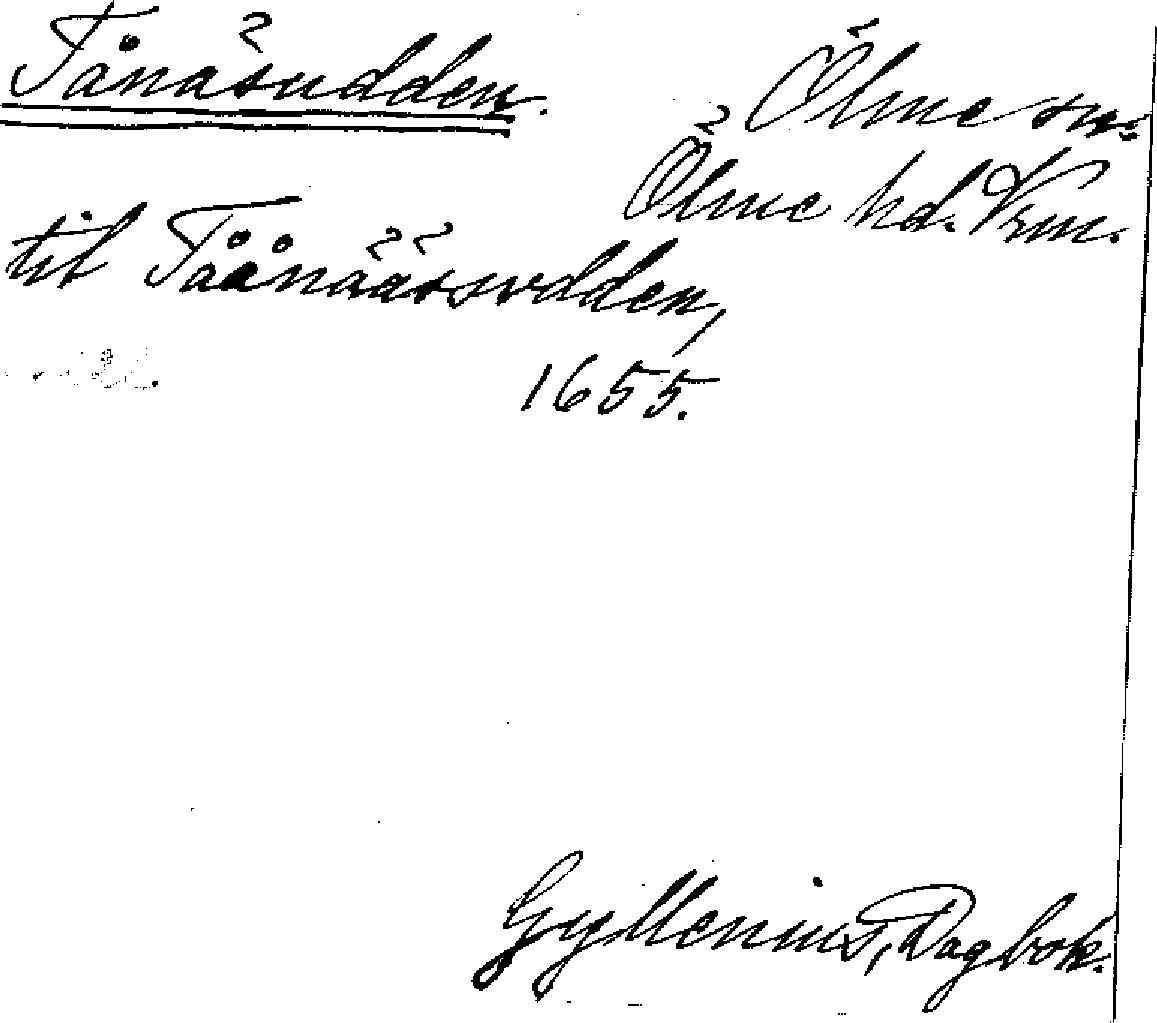 Tånäsudden.
Ölme sn.
Ölme hd. Vrm.
til Tåånääsudden,
1655.
Gyllenius, Dagbok.